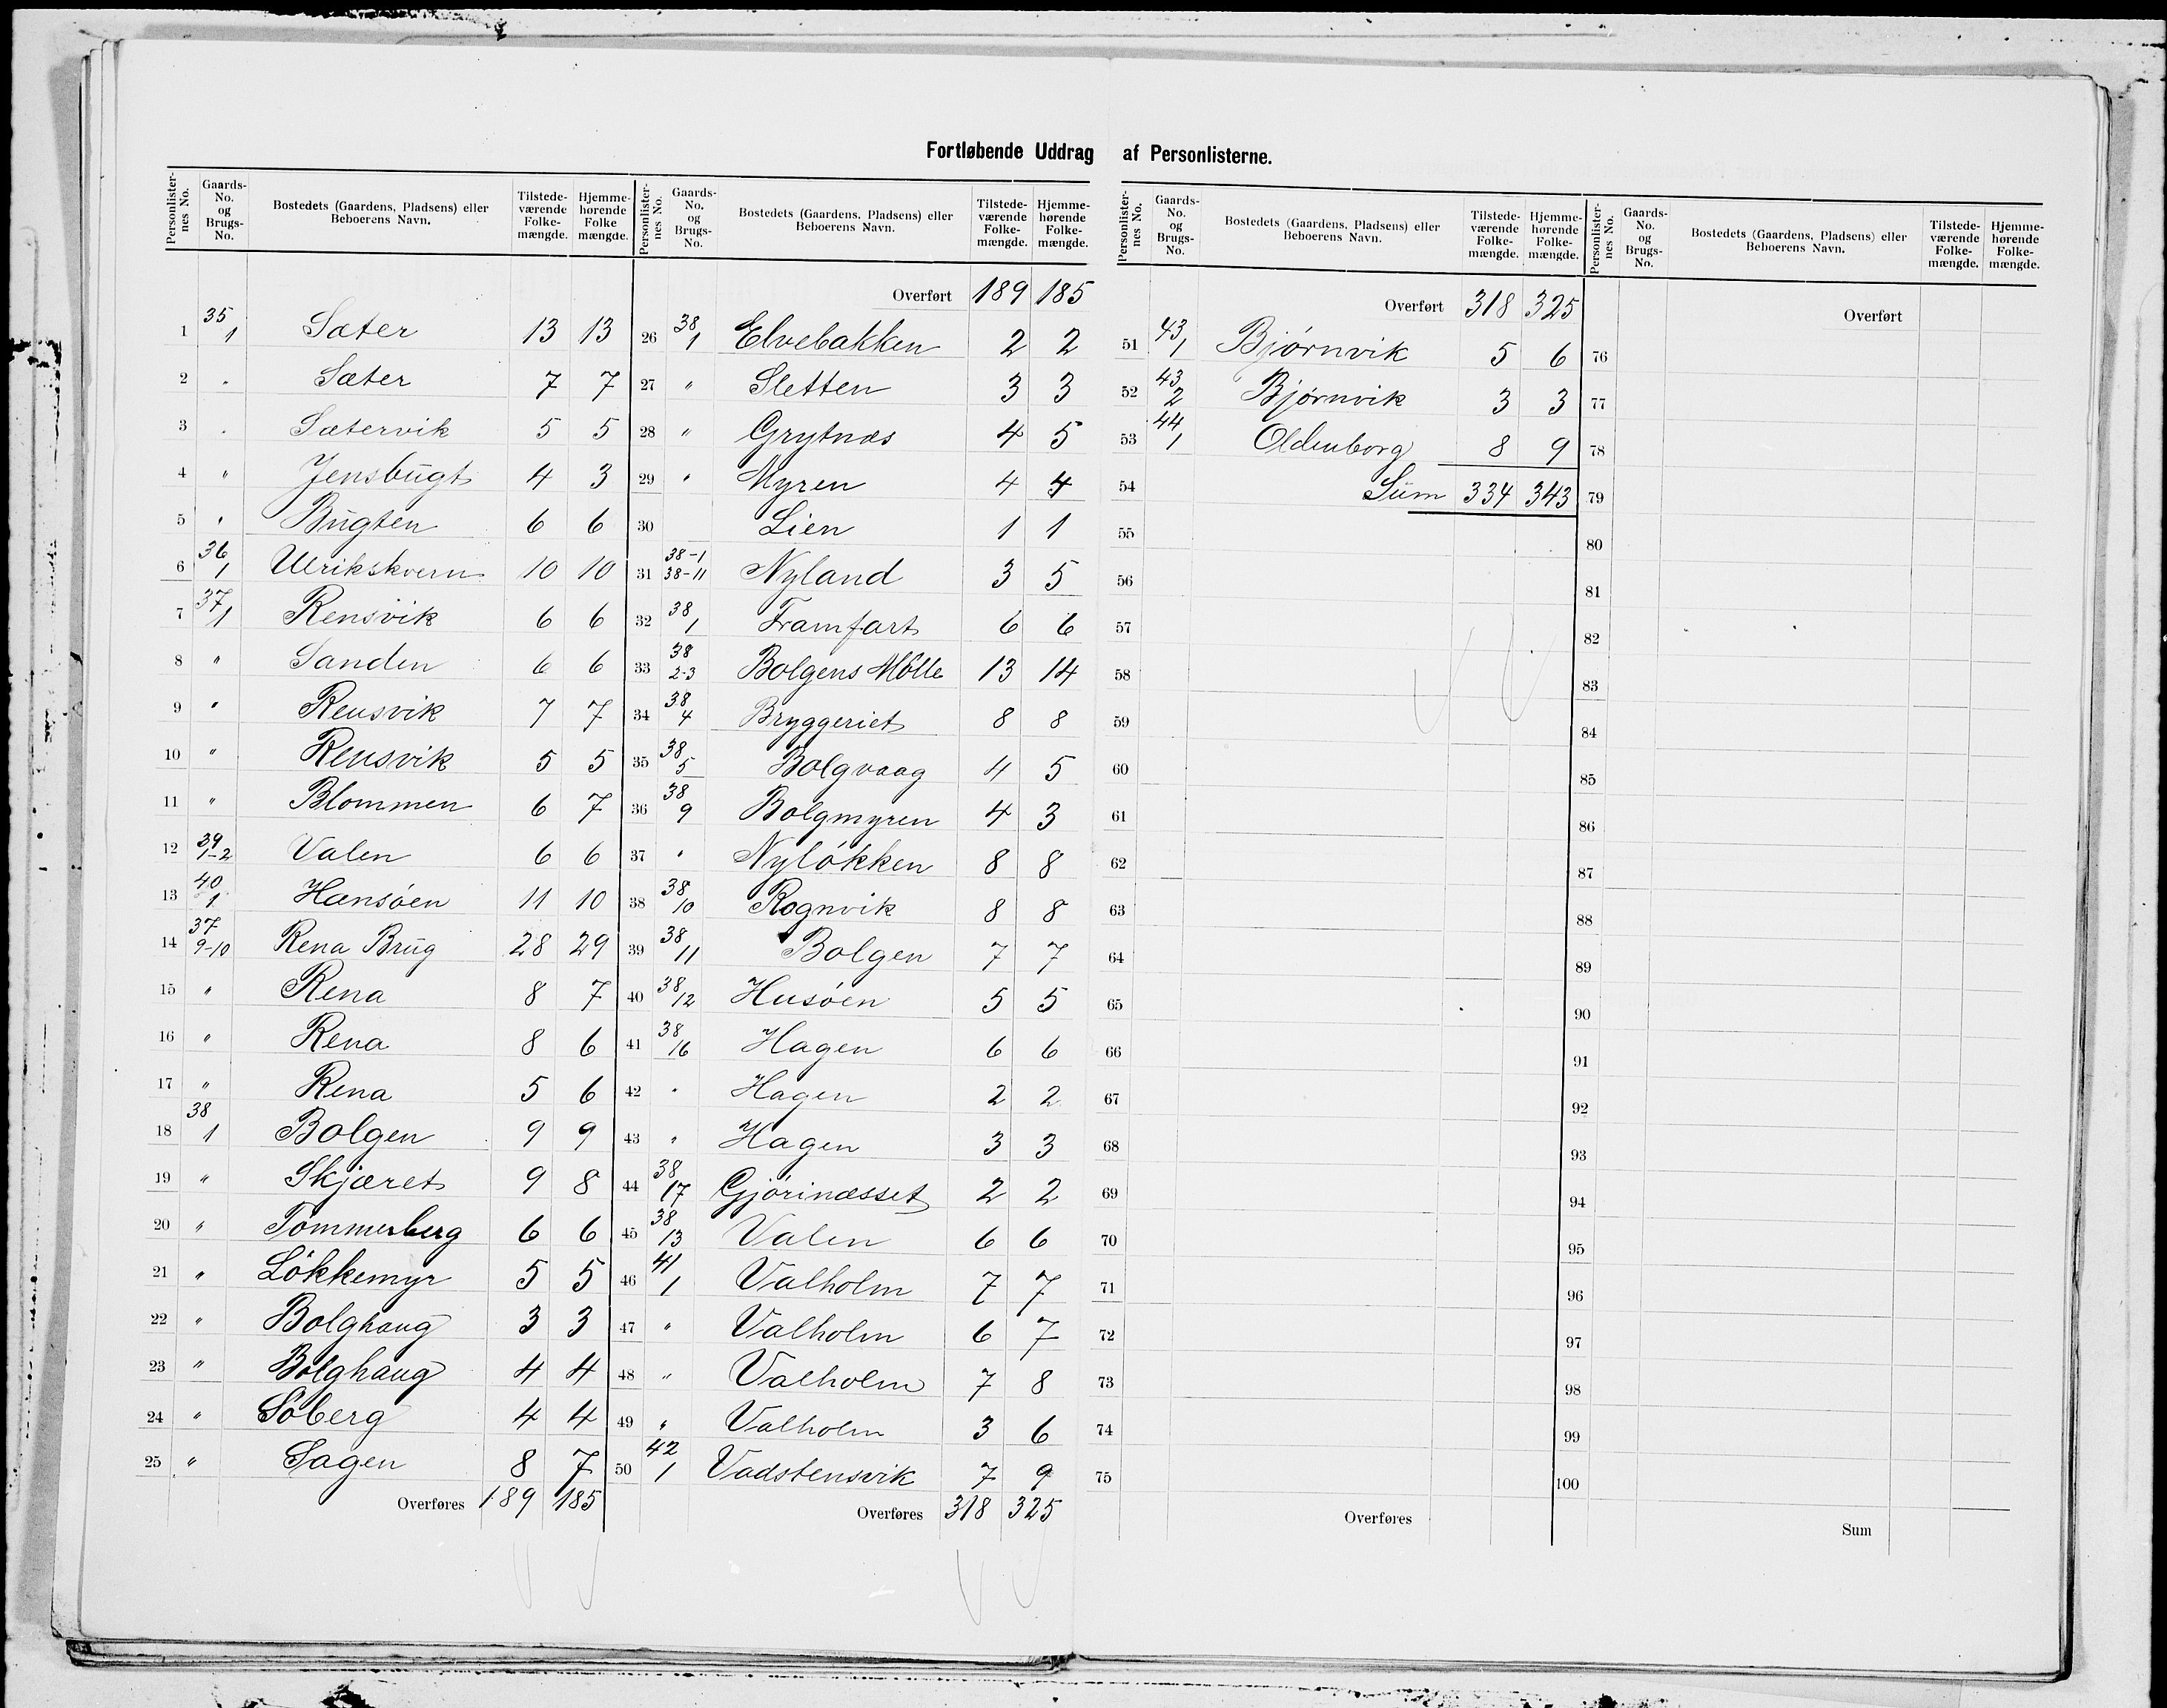 Fortløbende Uddrag af Personlisterne.
Personlisternes No. Gaards-No. og Brugs-No. Bostedets (Gaardens, Pladsens) eller Beboerens Navn. Tilstedeværende Folkemængde. Hjemmehørende Folkemængde.
1 35/1 Sæter 13 13
2 " Sæter 7 7
3 " Sætervik 5 5
4 " Jensbugt 4 3
5 " Bugten 6 6
6 36/1 Ulrikskvern 10 10
7 37/1 Rensvik 6 6
8 " Sanden 6 6
9 " Rensvik 7 7
10 " Rensvik 5 5
11 " Blommen 6 7
12 39/1-2 Valen 6 6
13 40/1 Hansøen 11 10
14 37/9-10 Rena Brug 28 29
15 " Rena 8 7
16 " Rena 8 6
17 " Rena 5 6
18 38/1 Bolgen 9 9
19 " Skjæret 9 8
20 " Tømmerberg 6 6
21 " Løkkemyr 5 5
22 " Bolghaug 3 3
23 " Bolghaug 4 4
24 " Søberg 4 4
25 " Sagen 8 7
Overføres 189 185
Personlisternes No. Gaards-No. og Brugs-No. Bostedets (Gaardens, Pladsens) eller Beboerens Navn. Tilstedeværende Folkemængde. Hjemmehørende Folkemængde.
Overført 189 185
26 38/1 Elvebakken 2 2
27 " Sletten 3 3
28 " Grytnæs 4 5
29 " Myren 4 4
30 Lien 1 1
31 38-1 38-11 Nyland 3 5
32 38/1 Framfart 6 6
33 38/2-3 Bolgens Mølle 13 14
34 38/4 Bryggeriet 8 8
35 38/5 Bolgvaag 4 5
36 38/9 Bolgmyren 4 3
37 " Nyløkken 8 8
38 38/10 Rognvik 8 8
39 38/11 Bolgen 7 7
40 38/12 Husøen 5 5
41 38/16 Hagen 6 6
42 " Hagen 2 2
43 " Hagen 3 3
44 38/17 Gjørinæsset 2 2
45 38/13 Valen 6 6
46 41/1 Valholm 7 7
47 " Valholm 6 7
48 " Valholm 7 8
49 " Valholm 3 6
50 42/1 Vadstensvik 7 9
Overføres 318 325
Personlisternes No. Gaards-No. og Brugs-No. Bostedets (Gaardens, Pladsens) eller Beboerens Navn. Tilstedeværende Folkemængde. Hjemmehørende Folkemængde.
Overført 318 325
51 43/1 Bjørnvik 5 6
52 43/2 Bjørnvik 3 3
53 44/1 Oldenborg 8 9
54 Sum 334 343
55
56
57
58
59
60
61
62
63
64
65
66
67
68
69
70
71
72
73
74
75
Overføres
Personlisternes No. Gaards-No. og Brugs-No. Bostedets (Gaardens, Pladsens) eller Beboerens Navn. Tilstedeværende Folkemængde. Hjemmehørende Folkemængde.
Overført
76
77
78
79
80
81
82
83
84
85
86
87
88
89
90
91
92
93
94
95
96
97
98
99
100
Sum